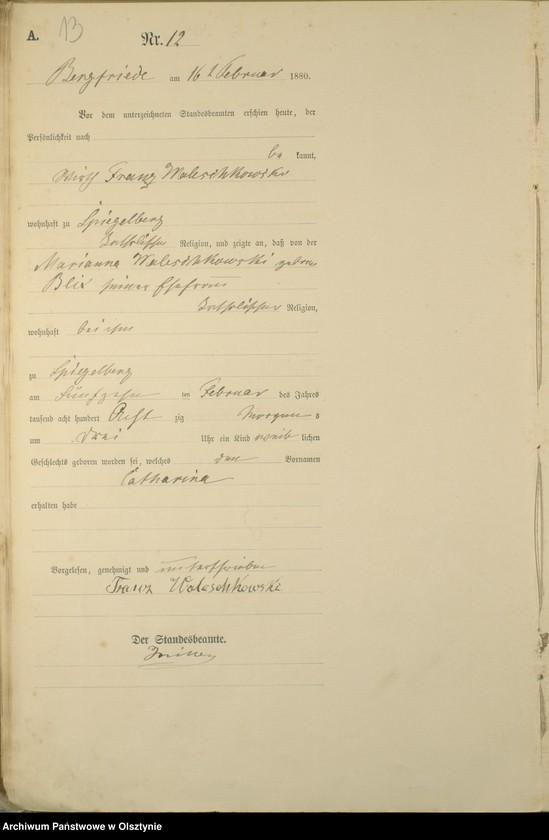 A. 13
Nr. 12
Bergfriede am 16t Februar 1880.
Vor dem unterzeichneten Standesbeamten erschien heute, der
Persönlichkeit nach
be kannt,
Wirth Franz Waleschkowski
wohnhaft zu Spiegelberg
katholischer Religion, und zeigte an, daß von der
Marianna Waleschkowski geborne
Blix seiner Ehefrau
katholischer Religion,
wohnhaft bei ihm
zu Spiegelberg
am fünfzehn ten Februar des Jahres
tausend acht hundert Acht zig Morgen s
um drei Uhr ein Kind weib lichen
Geschlechts geboren worden sei, welches den Vornamen
Catharina
erhalten habe
Vorgelesen, genehmigt und unterschrieben
Franz Waleschkowski
Der Standesbeamte.
Archiwum Państwowe w Olsztynie